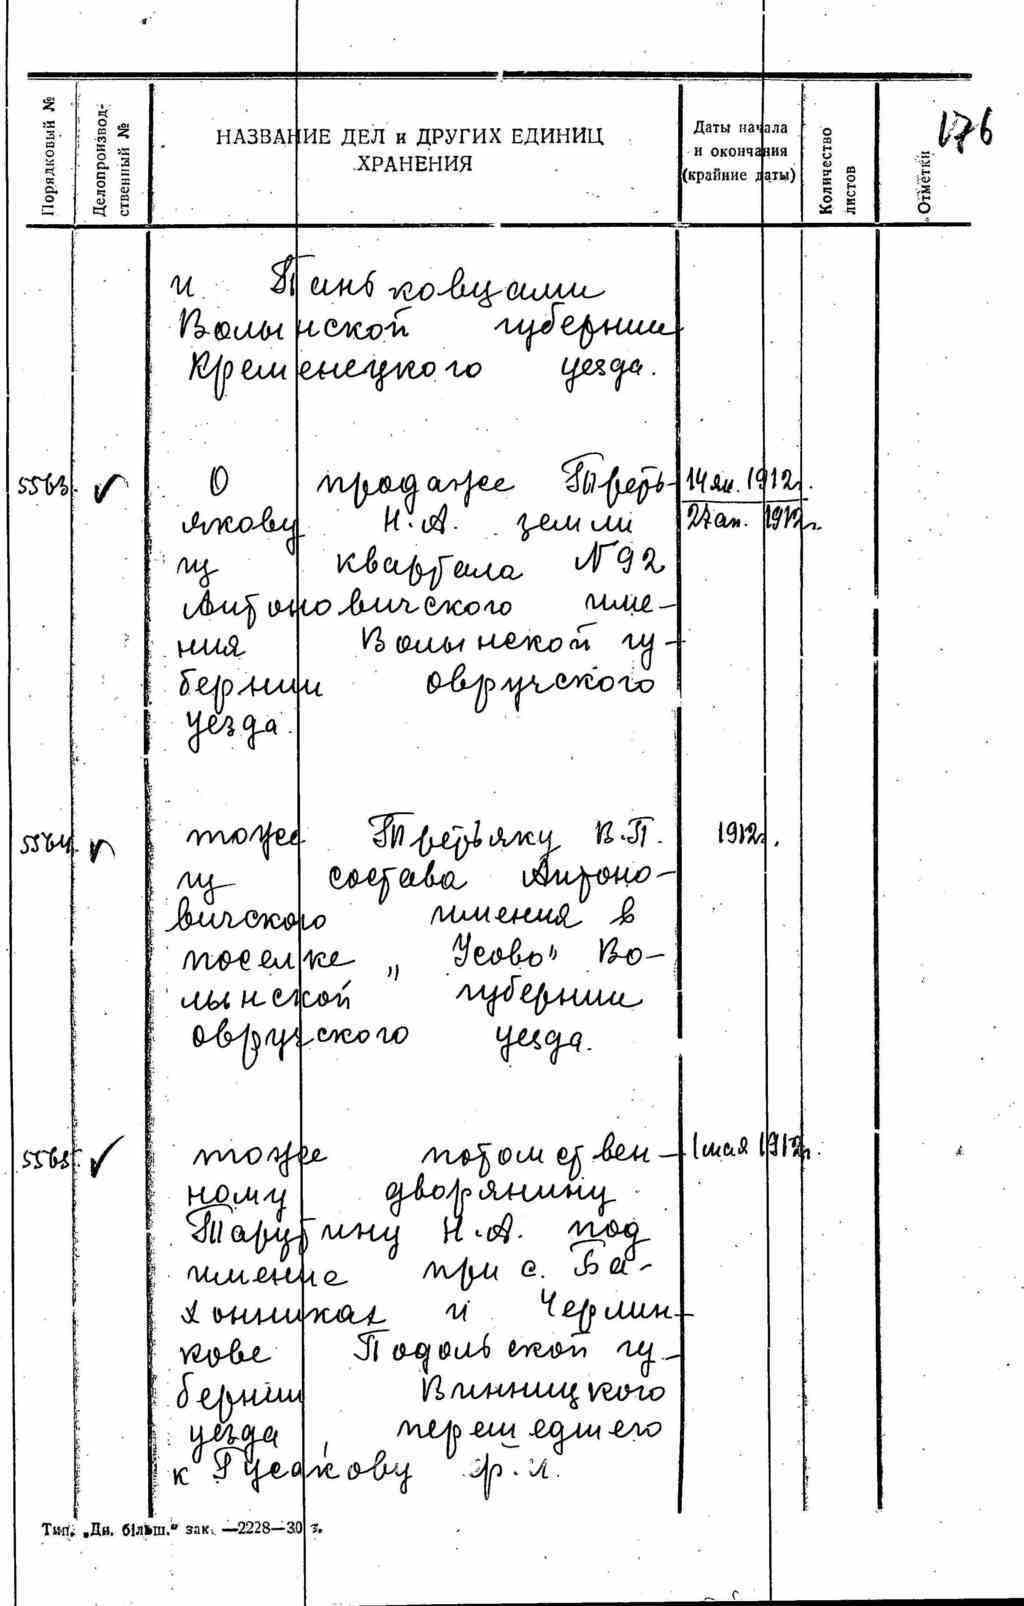 176
Порядковый №
Делопроизвод-
ственный №
НАЗВАНИЕ ДЕЛ и ДРУГИХ ЕДИНИЦ
ХРАНЕНИЯ
Даты начала
и окончания
(крайние даты)
Количество
листов
Отметки
и Паньковцами
Волынской губернии
Кременецкого уезда.
5563. О продаже Треть- 14 ян. 1912г.
якову Н.А. земли 27 ап. 1912г.
из квартала N 92
Антоновичского име-
ния Волынской гу-
бернии овручского
уезда.
5564. тоже Третьяку В.П. 1912г.
из состава Антоно-
вичского имения в
поселке „Усово" Во-
лынской губернии
овручского уезда.
5565. тоже потомствен- 1 мая 1912г.
ному дворянину
Тарутину Н.А. под
имение при с. Ба-
хонниках и Черлин-
кове Подольской гу-
бернии Винницкого
уезда, перешедшего
к Гусакову
Тип. „Дн. більш." зак. —2228—30 г.